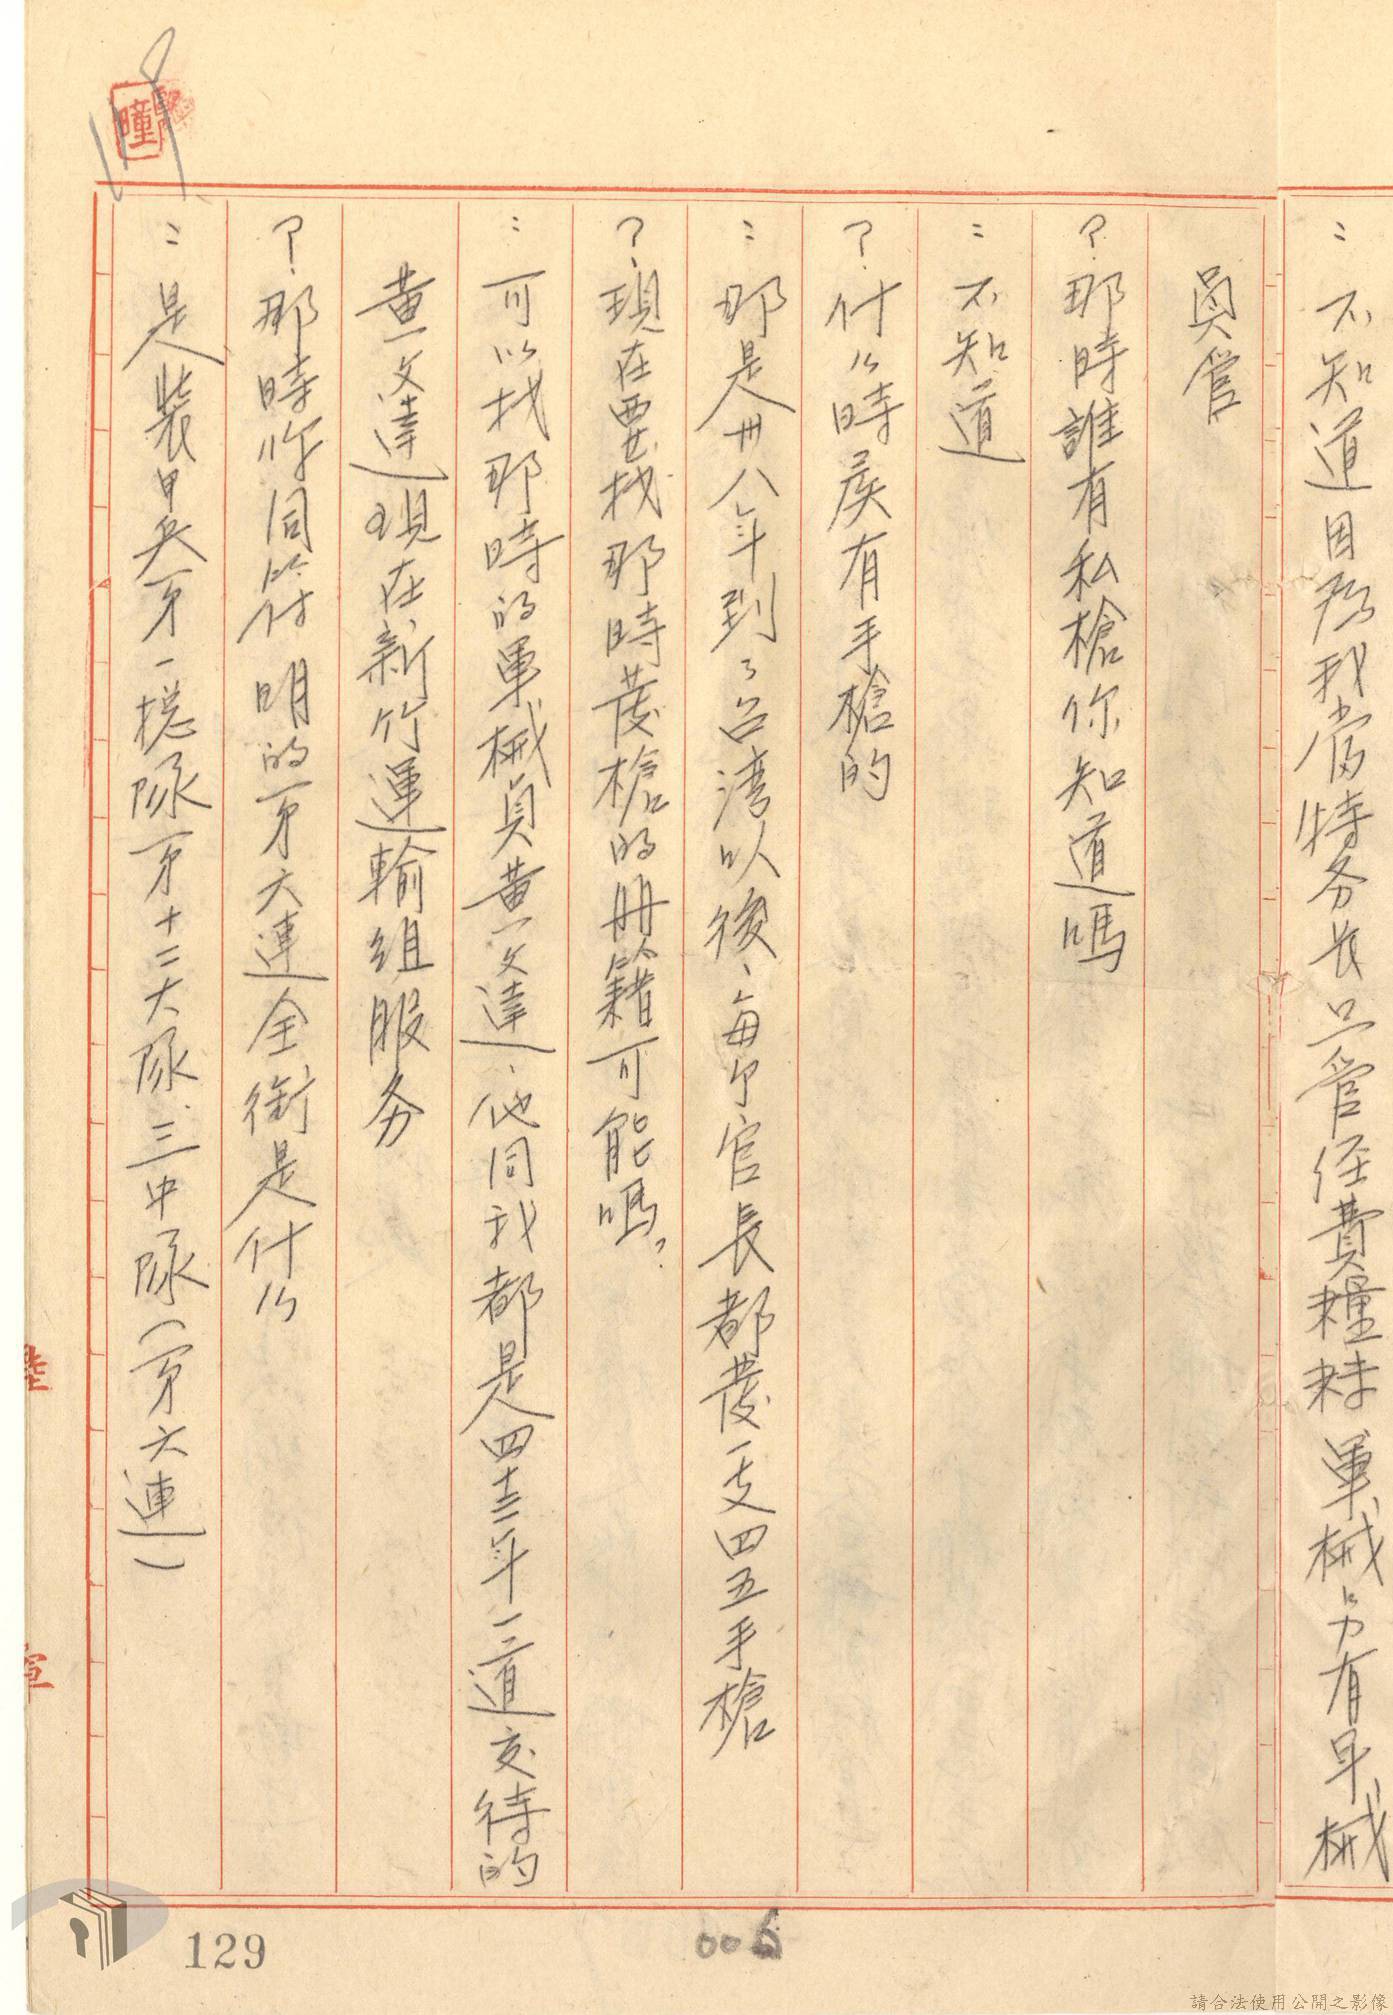 ：不知道因為我當特务長只管经費糧秣軍械另有军械
員管
？那時誰有私槍你知道嗎
：不知道
？什么時候有手槍的
：那是卅八年到了台湾以後、每个官長都發一支四五手槍
？現在要找那時發槍的册籍可能嗎？
：可以找那時的軍械員黄文達、他同我都是四十三年一道交待的
黄文達現在新竹運輸組服务
？那時你同符明的第六連全銜是什么
：是裝甲兵第一總隊第十二大隊三中隊（第六連）
瞳
陸
軍
129
006
請合法使用公開之影像